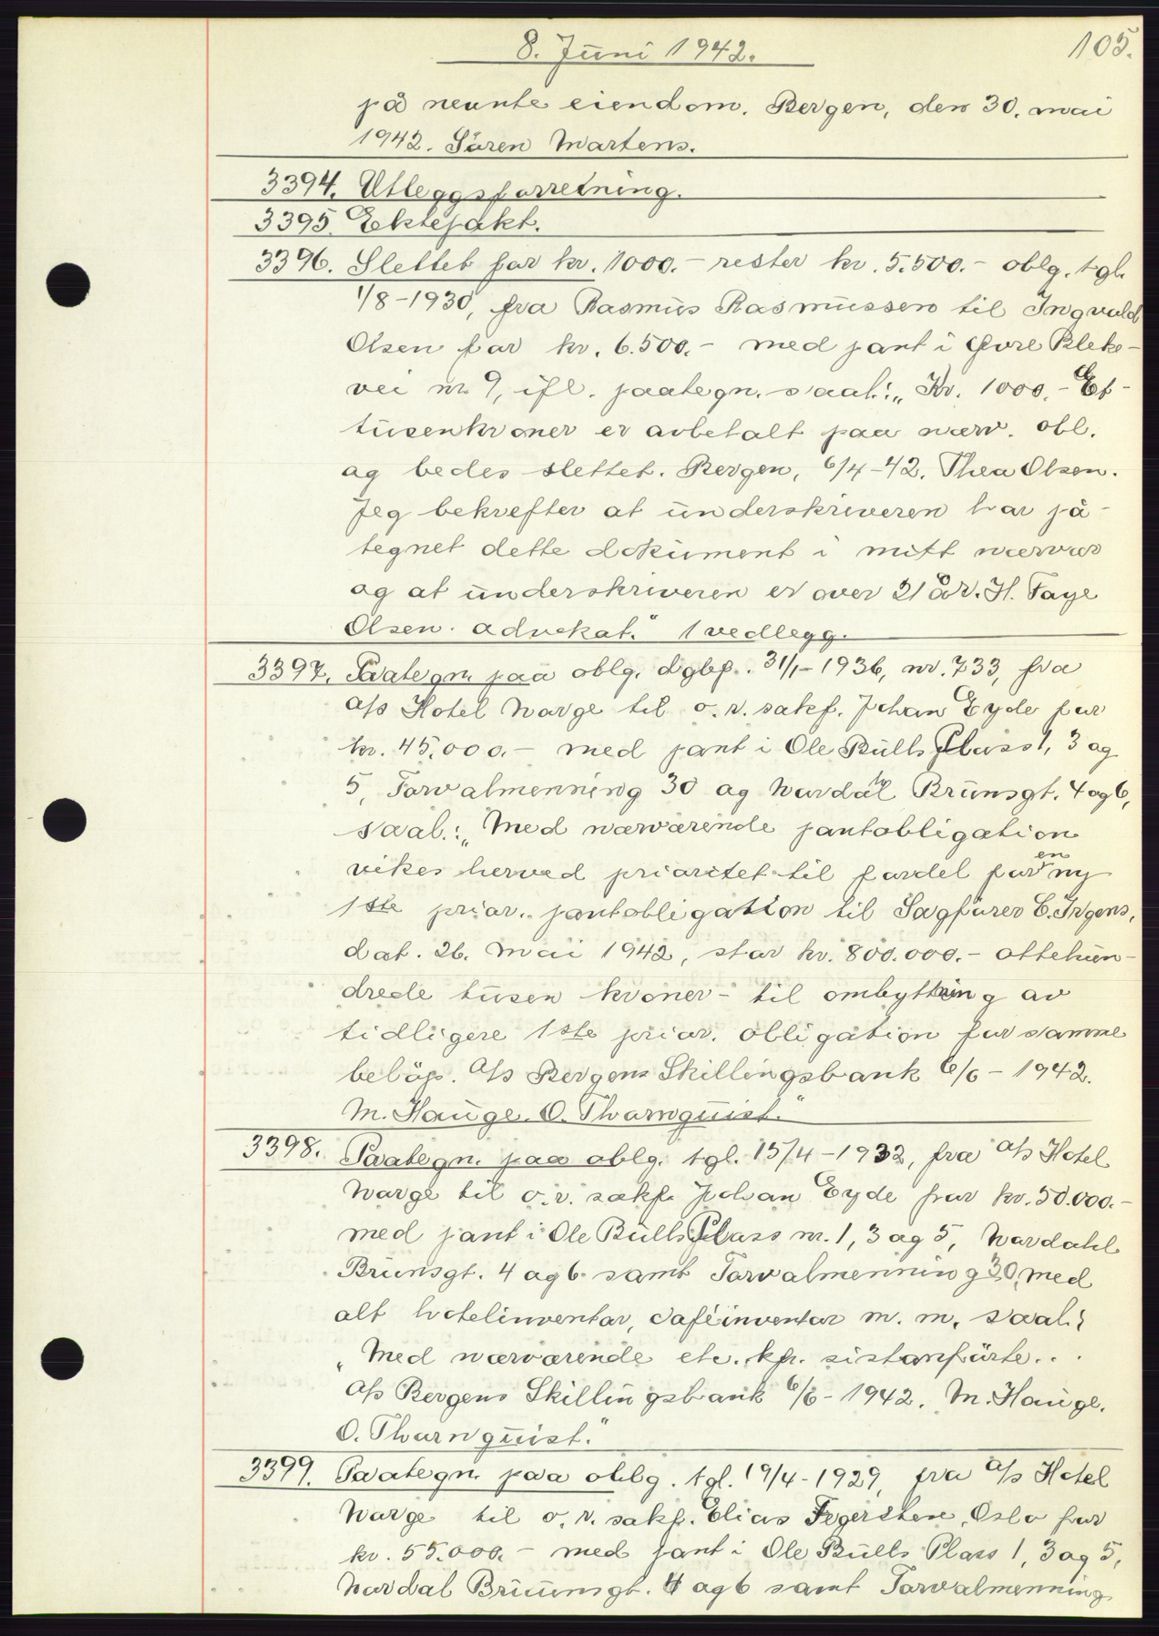 8. Juni 1942.
105.
på nevnte eiendom. Bergen, den 30. mai
1942. Sören Martens.
3394. Utleggsforretning.
3395. Ektepakt.
3396. Slettet for kr. 1000.- rester kr. 5.500.- oblg. tgl.
1/8-1930, fra Rasmus Rasmussen til Ingvald
Olsen for kr. 6.500.- med pant i Øvre Bleke-
vei nr 9, ifl. paategn. saal: „Kr. 1000.- Et-
tusenkroner er avbetalt paa nærv. obl.
og bedes slettet. Bergen, 6/4-42. Thea Olsen.
Jeg bekrefter at underskriveren har på-
tegnet dette dokument i mitt nærvær
og at underskriveren er over 21 år. H. Faye
Olsen. advokat." 1 vedlegg.
3397. Paategn. paa oblg. dgbf. 31/1-1936, nr. 733, fra
A/s Hotel Norge til o.r. sakf. Johan Eyde for
kr. 45.000.- med pant i Ole Bulls Plass 1, 3 og
5, Torvalmenning 30 og Nordal Brunsgt. 4 og 6,
saal.: „Med nærværende pantobligation
vikes herved prioritet til fordel for en ny
1ste prior. pantobligation til Sagförer C. Irgens,
dat. 26. mai 1942, stor kr. 800.000.- ottehun-
drede tusen kroner- til ombytning av
tidligere 1ste prior. obligation for samme
belöp. A/s Bergens Skillingsbank 6/6-1942.
M. Hauge. O. Thornquist."
3398. Paategn. paa oblg. tgl. 15/4-1932, fra A/s Hotel
Norge til o.r. sakf. Johan Eyde for kr. 50.000.-
med pant i Ole Bulls Plass nr. 1, 3 og 5, Nordahl
Brunsgt. 4 og 6 samt Torvalmenning 30, med
alt hotelinventar, caféinventar m. m. saal:
„Med nærværende etc. kfr. sistanförte...
A/s Bergens Skillingsbank 6/6-1942. M. Hauge.
O. Thornquist."
3399. Paategn. paa oblg. tgl. 19/4-1929, fra A/s Hotel
Norge til o.r. sakf. Elias Oslo for
kr. 55.000.- med pant i Ole Bulls Plass 1, 3 og 5,
Nordal Bruunsgt. 4 og 6 samt Torvalmenning